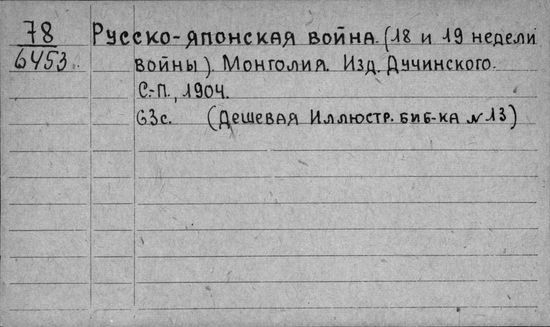 78
6453
Русско-японская война. (18 и 19 недели
войны). Монголия. Изд. Дучинского.
С.-П., 1904.
63с. (Дешевая Иллюстр. биб-ка №13)